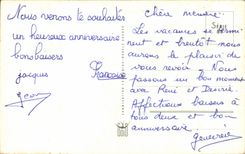 Nous venons te souhaiter
un heureux anniversaire
bons baisers
jacques Françoise
jean
Chère mémère
Les vacances se terminent
et bientôt nous
aurons le plaisir de
vous revoir Nous
passons un bon moment
avec René et
Affectueux baisers à
tous deux et bon
anniversaire
Geneviève